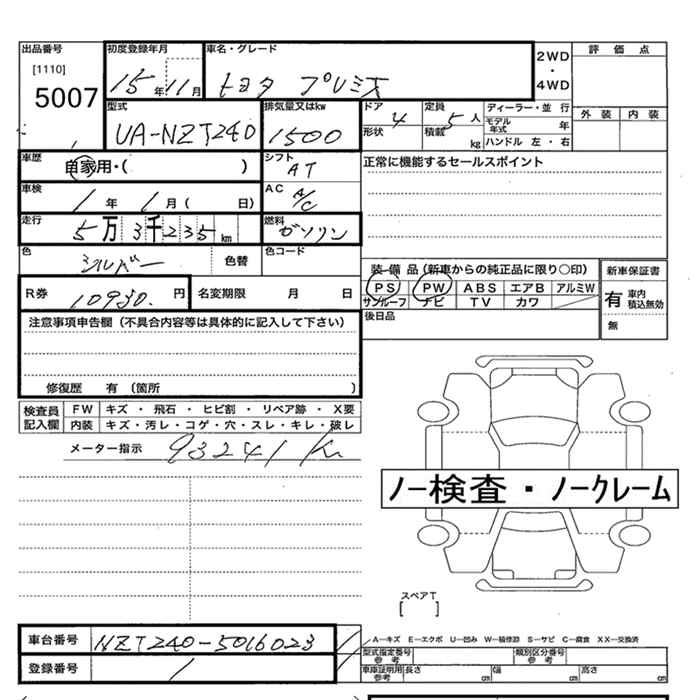 出品番号 初度登録年月 車名・グレード 評価点
[1110] 15年11月 トヨタ プレミオ 2WD・4WD
5007
型式 排気量又はkw ドア 定員 ディーラー・並行 外装 内装
UA-NZT240 1500 4 5人 モデル年式 年
形状 積載 kg ハンドル 左・右
車歴 自家用・( ) シフト AT 正常に機能するセールスポイント
車検 年 月( 日) AC A/C
走行 5万3千235km 燃料 ガソリン
色 シルバー 色替 色コード
装備品(新車からの純正品に限り○印) 新車保証書
R券 10950.円 名変期限 月 日 PS PW ABS エアB アルミW 有 車内 積込無効
サンルーフ ナビ TV カワ
注意事項申告欄(不具合内容等は具体的に記入して下さい) 後日品 無
修復歴 有(箇所 )
検査員記入欄 FW キズ・飛石・ヒビ割・リペア跡・X要
内装 キズ・汚レ・コゲ・穴・スレ・キレ・破レ
メーター指示 93241Km
ノー検査・ノークレーム
スペアT
[ ]
車台番号 NZT240-5016023 A—キズ E—エクボ U—凹み W—補修跡 S—サビ C—腐食 XX—交換済
登録番号 型式指定番号 参考 類別区分番号 参考
車庫証明用 参考 長さ cm 幅 cm 高さ cm